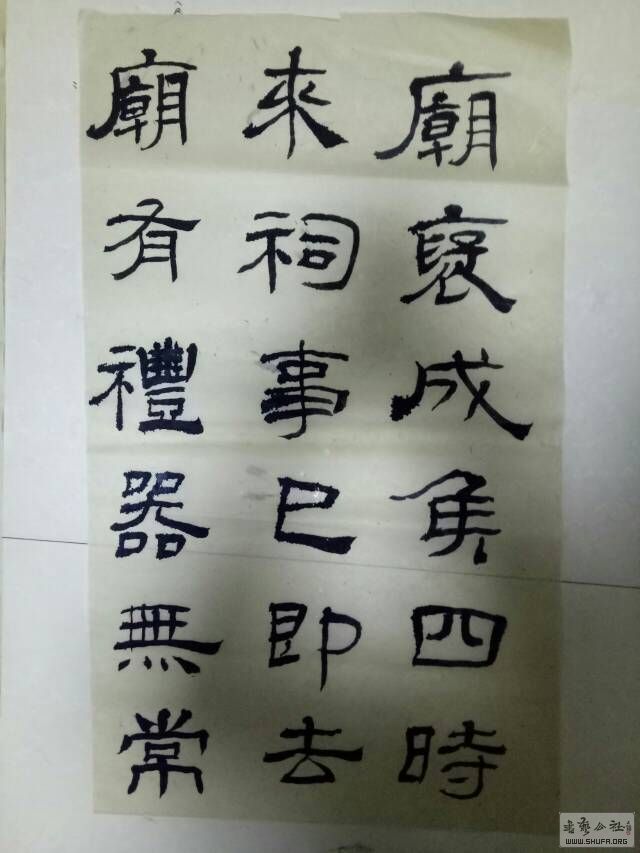 廟褒成侯四時
來祠事已即去
廟有禮器無常
書藝公社
WWW.SHUFA.ORG